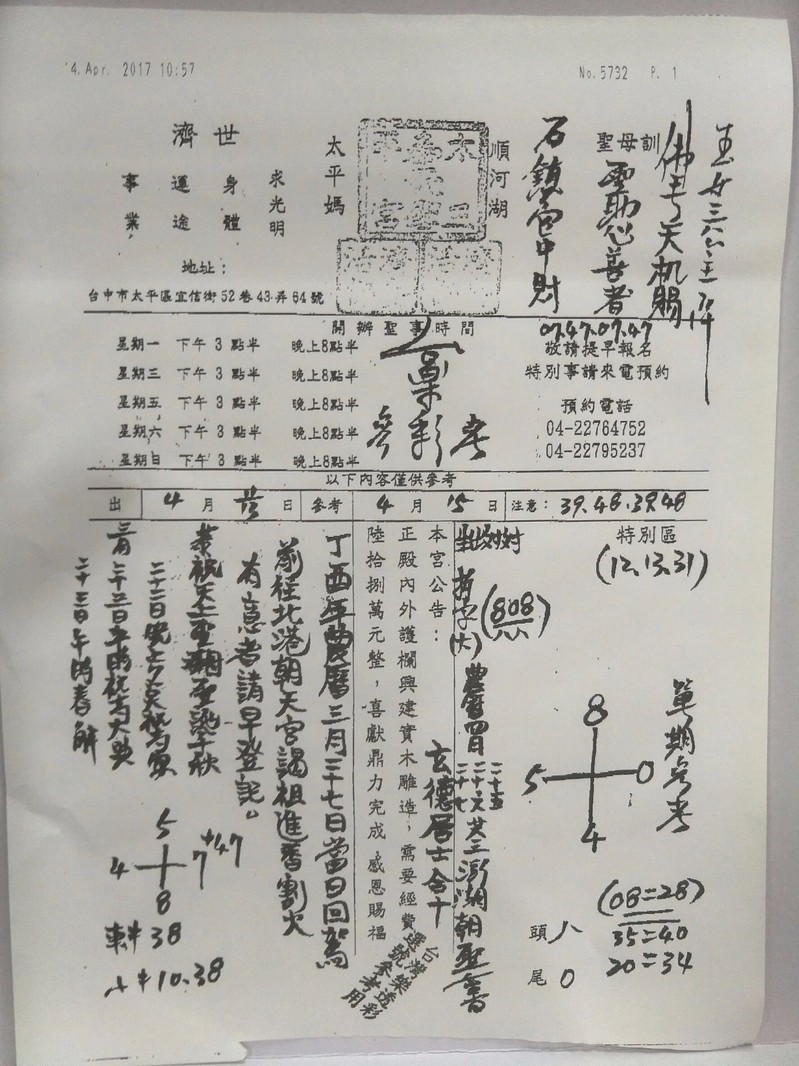 4. Apr. 2017 10:57
No. 5732 P. 1
聖母訓
佛号天机賜
順河湖
石鎮宮中財
太平媽
求光明
濟世
身體
運途
事業
地址：
台中市太平區宜信街52巷43弄64號
開辦聖事時間
星期一 下午3點半 晚上8點半
星期三 下午3點半 晚上8點半
星期五 下午3點半 晚上8點半
星期六 下午3點半 晚上8點半
星期日 下午3點半 晚上8點半
參彩考
07.47.07.47
敬請提早報名
特別事請來電預約
預約電話
04-22764752
04-22795237
以下內容僅供參考
出 4月 日 參考 4月15日 注意：39.48.39.48
特別區
(12.13.31)
單期參考
8
5 0
4
(08=28)
35=40
20=34
頭 八
尾 0
(808)
農曆四月
二十五
二十六
二十七
共三 澎湖朝聖
本宮公告：
正殿內外護欄興建實木雕造，需要經費
陸拾捌萬元整，喜獻鼎力完成，感恩賜福
玄德居士合十
台灣樂透彩
選號參考用
丁酉年農曆三月二十七日當日回駕
前往北港朝天宮謁祖進香割火
有意者請早登記。
恭祝天上聖母聖誕千秋
5
4 7+47
8
38
10.38